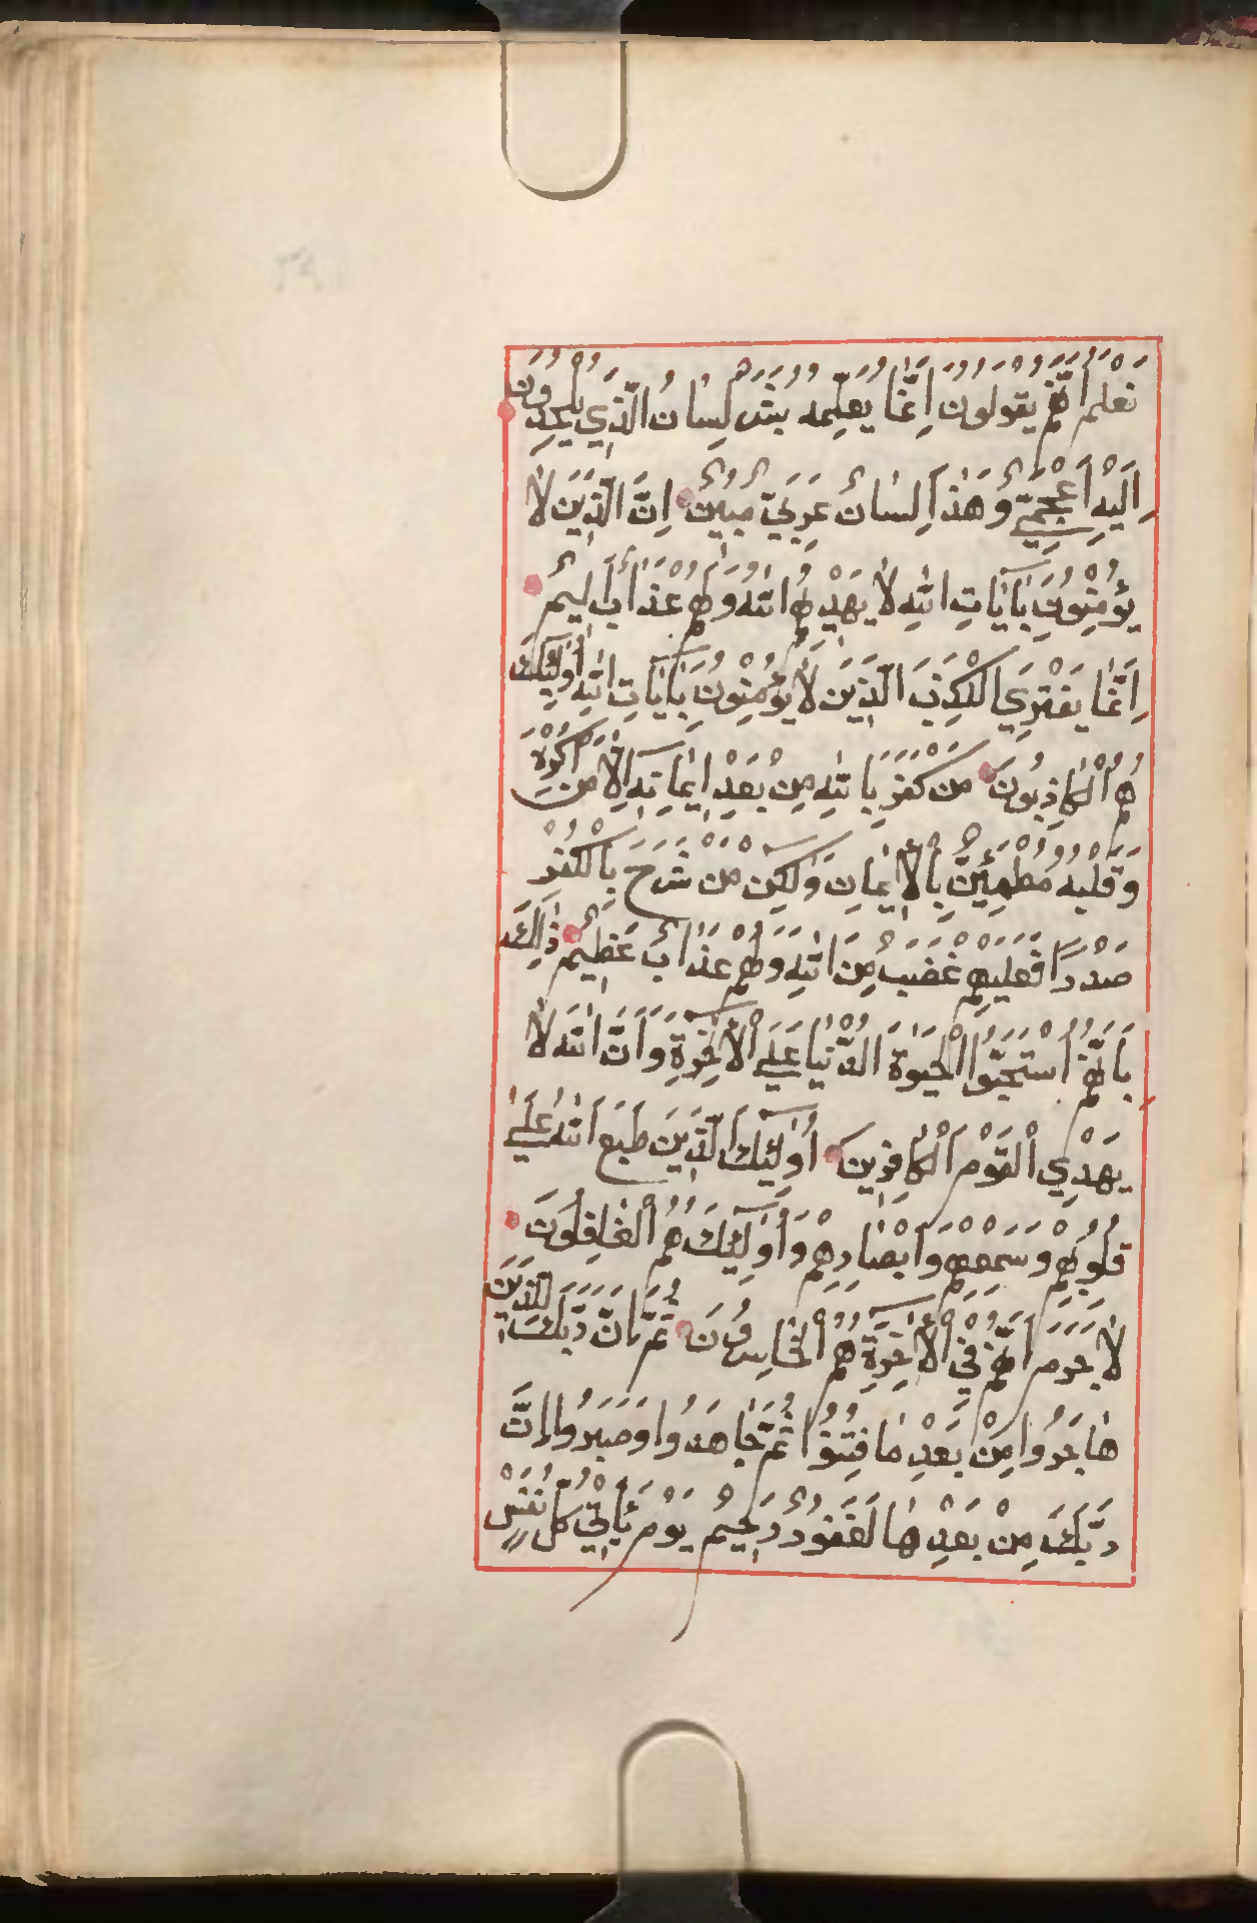 نَعْلَمُ اَنَّهُمْ يَقُولُونَ اِنَّمَا يُعَلِّمُهُ بَشَرٌ لِسَانُ الَّذِي يُلْحِدُونَ
اِلَيْهِ اَعْجَمِيٌّ وَهَذَا لِسَانٌ عَرَبِيٌّ مُبِينٌ اِنَّ الَّذِينَ لَا
يُؤْمِنُونَ بِاٰيَاتِ اللّٰهِ لَا يَهْدِيهِمُ اللّٰهُ وَلَهُمْ عَذَابٌ اَلِيمٌ
اِنَّمَا يَفْتَرِي الْكَذِبَ الَّذِينَ لَا يُؤْمِنُونَ بِاٰيَاتِ اللّٰهِ اُولٰئِكَ
هُمُ الْكَاذِبُونَ مَنْ كَفَرَ بِاللّٰهِ مِنْ بَعْدِ اِيمَانِهِ اِلَّا مَنْ اُكْرِهَ
وَقَلْبُهُ مُطْمَئِنٌّ بِالْاِيمَانِ وَلٰكِنْ مَنْ شَرَحَ بِالْكُفْرِ
صَدْرًا فَعَلَيْهِمْ غَضَبٌ مِنَ اللّٰهِ وَلَهُمْ عَذَابٌ عَظِيمٌ ذٰلِكَ
بِاَنَّهُمُ اسْتَحَبُّوا الْحَيٰوةَ الدُّنْيَا عَلَى الْاٰخِرَةِ وَاَنَّ اللّٰهَ لَا
يَهْدِي الْقَوْمَ الْكَافِرِينَ اُولٰئِكَ الَّذِينَ طَبَعَ اللّٰهُ عَلٰى
قُلُوبِهِمْ وَسَمْعِهِمْ وَاَبْصَارِهِمْ وَاُولٰئِكَ هُمُ الْغَافِلُونَ
لَا جَرَمَ اَنَّهُمْ فِي الْاٰخِرَةِ هُمُ الْخَاسِرُونَ ثُمَّ اِنَّ رَبَّكَ لِلَّذِينَ
هَاجَرُوا مِنْ بَعْدِ مَا فُتِنُوا ثُمَّ جَاهَدُوا وَصَبَرُوا اِنَّ
رَبَّكَ مِنْ بَعْدِهَا لَغَفُورٌ رَحِيمٌ يَوْمَ تَأْتِي كُلُّ نَفْسٍ